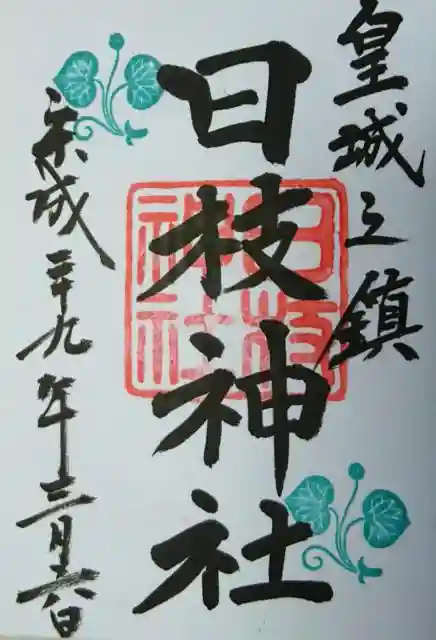 皇城之鎮
日枝神社
日枝神社
平成二十九年三月十六日